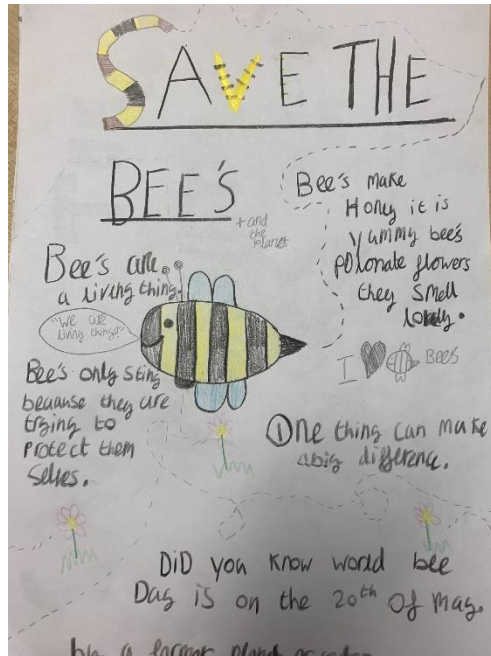 SAVE THE
BEE'S
+ and
the
planet
Bee's make
Honey it is
yummy bee's
polonate flowers
they smell
lovely.
Bee's are
a living thing.
"We are
living things"
I BEE'S
Bee's only sting
beauase they are
trying to
protect them
selfes.
One thing can make
a big difference.
DiD you know world bee
Day is on the 20th of may.
a farmer plant